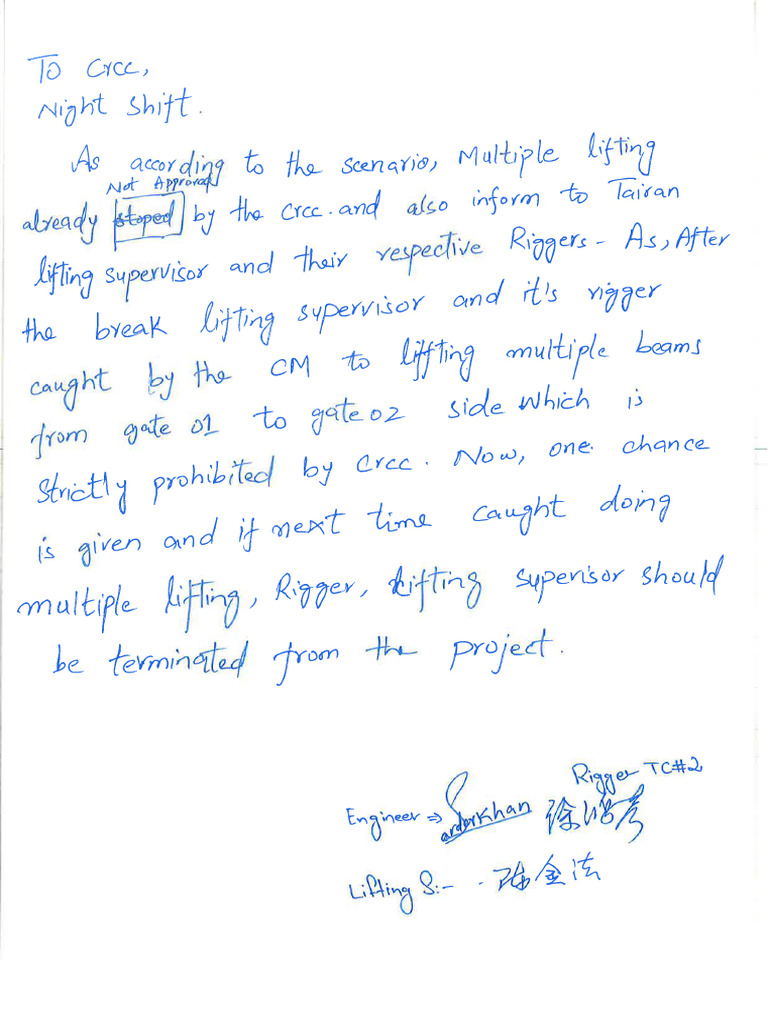 To Crcc,
Night Shift.
As according to the scenario, Multiple lifting
Not Approved
already stoped by the Crcc. and also inform to Tairan
lifting supervisor and their respective Riggers - As, After
the break lifting supervisor and it's rigger
caught by the CM to liffting multiple beams
from gate 01 to gate 02 side which is
strictly prohibited by Crcc. Now, one chance
is given and if next time caught doing
multiple lifting, Rigger, Lifting superisor should
be terminated from the project.
Rigger TC#2
Engineer ⇒ Sardar Khan 徐
Lifting S:- 金法